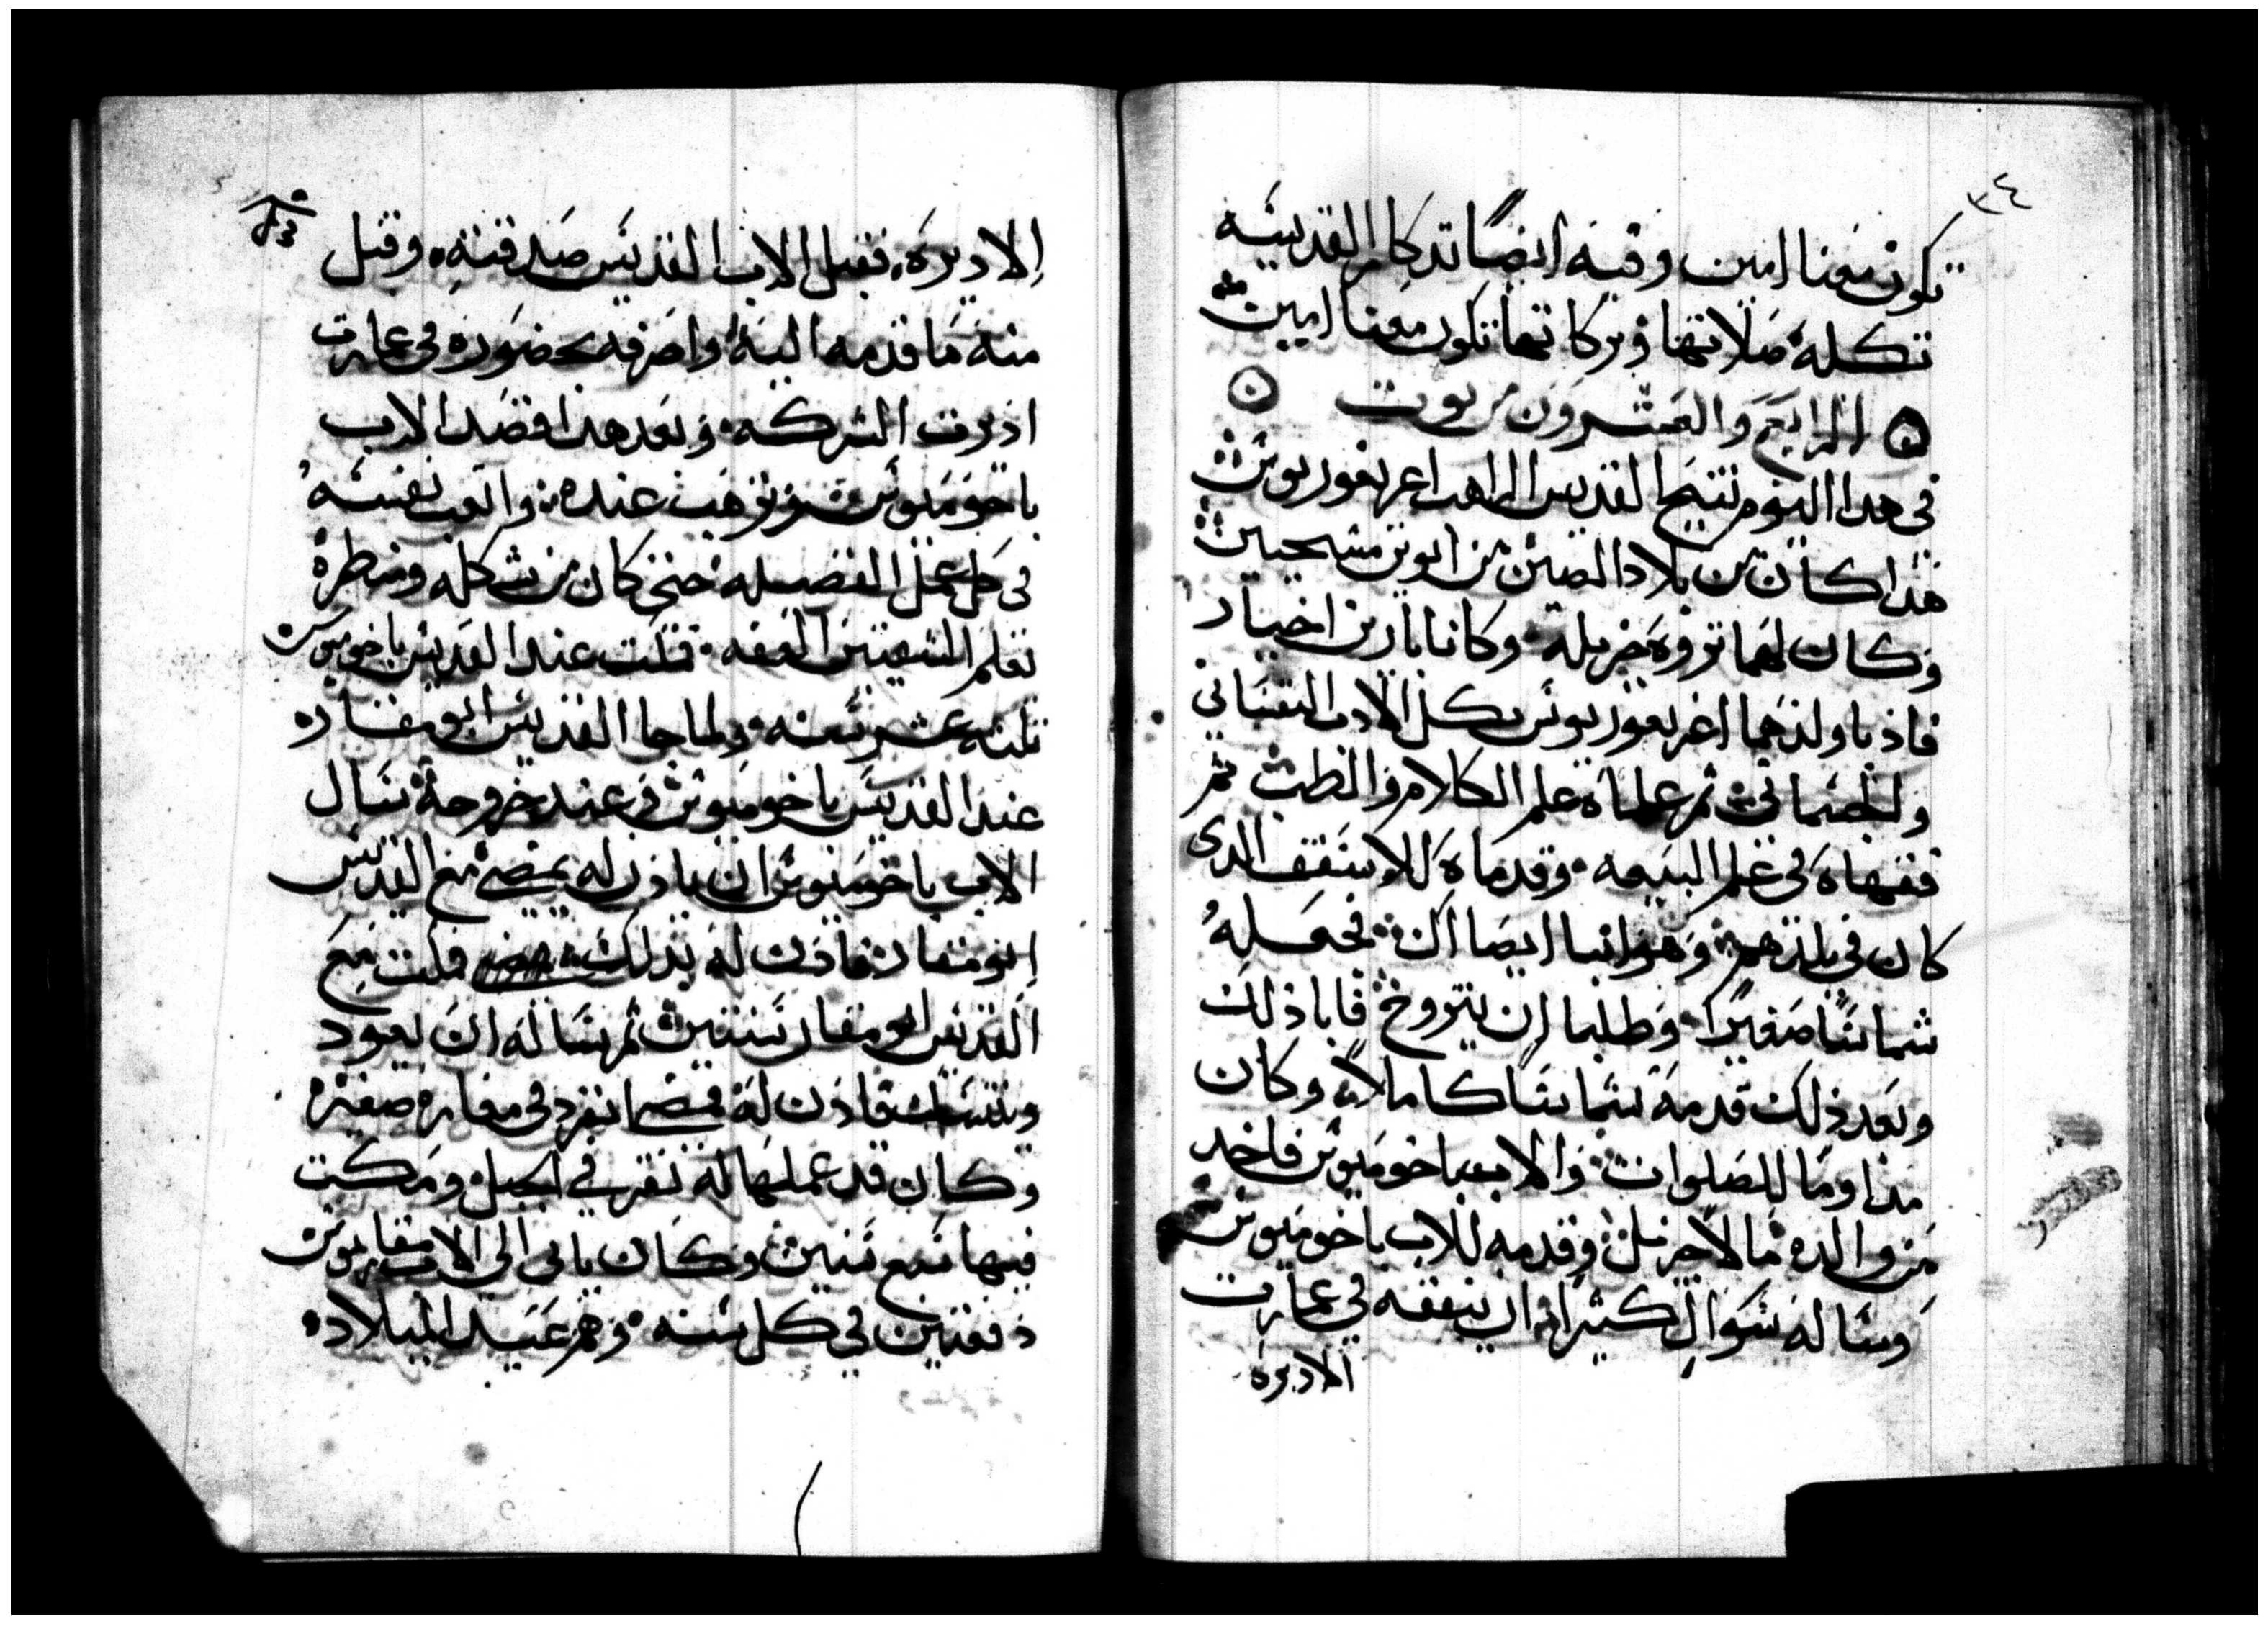 ٣٤
تكون معنا امين وفيه ايضًا تدكار القديسه
تكله صلاتها وبركاتها تكون معنا امين
الرابع والعشرون من توت
في هدا اليوم تنيح القديس الراهب اغريغوريوس
هذا كان من بلاد الصعيد من ابوين مسيحيين
وكان لهما تروه جزيله وكانا بارين اخيار
فاذبا ولدهما اغريغوريوس بكل الادب النفساني
والجسماني ثم علماه علم الكلام والطب ثم
فقهاه في علم البيعه وقدماه للاسقف الدي
كان في بلدهم وهو انبا ايصااك فجعله
شماسًا صغيرًا وطلبا ان يتزوج فابا ذلك
وبعد ذلك قدمه شماسًا كاملاً وكان
مداومًا للصلوات والاب باخوميوس فاخد
من والده مالاً جزيلاً وقدمه للاب باخوميوس
وساله سوال كثيرًا ان ينفقه في عمارت
الاديره
الاديره فقبل الاب القديس صدقته وقبل
منه ما قدمه اليه واصرفه بحضوره في عمارت
اديرت الشركه وبعد هدا قصد الاب
باخوميوس وترهب عنده واتعب نفسه
في كل عمل الفضيله حتى كان من شكله ومنظره
تعلم الشعبين العفه فمكت عند القديس باخوميوس
تلته عشر سنه ولما جا القديس ابو مقاره
عند القديس باخوميوس وعند خروجه سال
الاب باخوميوس ان ياذن له يمضي مع القديس
ابو مقار فاذن له بدلك فمكت مع
القديس ابو مقار سنتين ثم ساله ان يعود
ويتنسك فاذن له فمضا انفرد في مغاره صغيره
وكان قد عملها له نقر في الجبل ومكت
فيها سبع سنين وكان ياتي الي الاب مقاريوس
دفعتين في كل سنه وهم عيد الميلاد